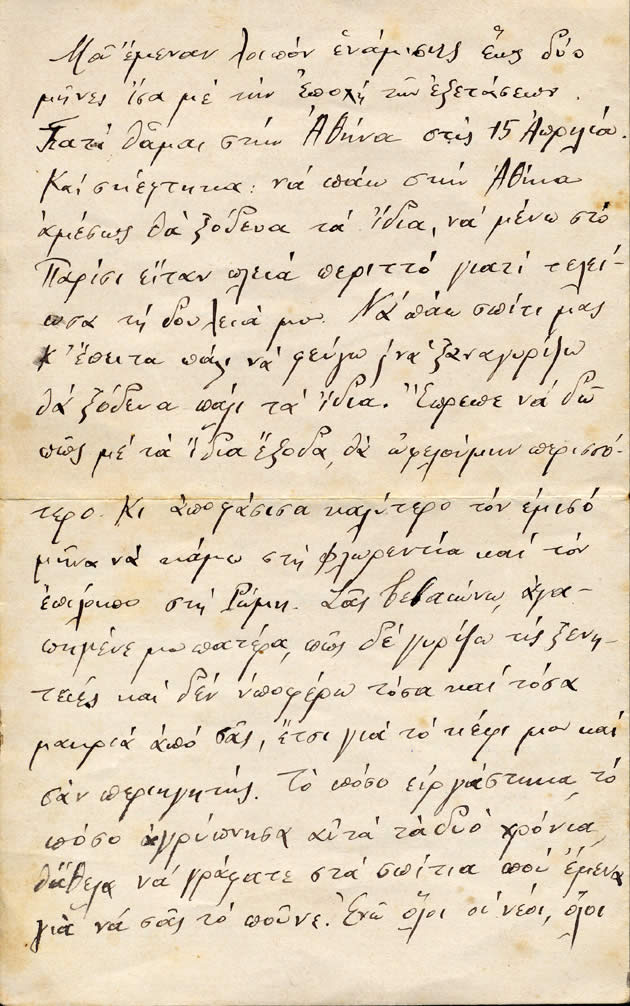 Μοῦ ἔμεναν λοιπόν ἑνάμισυς ἕως δύο
μῆνες ἴσα μέ τήν ἐποχή τῶν ἐξετάσεων.
Γιατί θἆμαι στήν Ἀθήνα στίς 15 Ἀπριλίου.
Καί σκέφτηκα: νά πάω στήν Ἀθήνα
ἀμέσως θά ξόδευα τά ἴδια, νά μένω στό
Παρίσι εἴταν πλειά περιττό γιατί τελεί-
ωσα τή δουλειά μου. Νά πάω σπίτι μας
κ' ἔπειτα πάλι νά φεύγω, νά ξαναγυρίζω
θά ξόδευα πάλι τά ἴδια. Ἔπρεπε νά δῶ
πῶς μέ τά ἴδια ἔξοδα, θά ὠφελούμουν περισσό-
τερο. Κι ἀποφάσισα καλύτερο τόν ἑμισό
μῆνα νά κάμω στή Φλωρεντία καί τόν
ἐπίλοιπο στή Ρώμη. Σᾶς βεβαιώνω, ἀγα-
πημένε μου πατέρα, πῶς δέ γυρίζω τίς ξενη-
τειές καί δέν ὑποφέρω τόσα καί τόσα
μακριά ἀπό σᾶς, ἔτσι γιά τό κέφι μου καί
σάν περιηγητής. Τό πόσο εἰργάστηκα, τό
πόσο ἀγρύπνησα αὐτά τά δυό χρόνια,
θἄθελα νά γράφατε στά σπίτια πού ἔμενα
γιά νά σᾶς τό ποῦνε. Ἐνῶ ὅλοι οἱ νέοι, ὅλοι